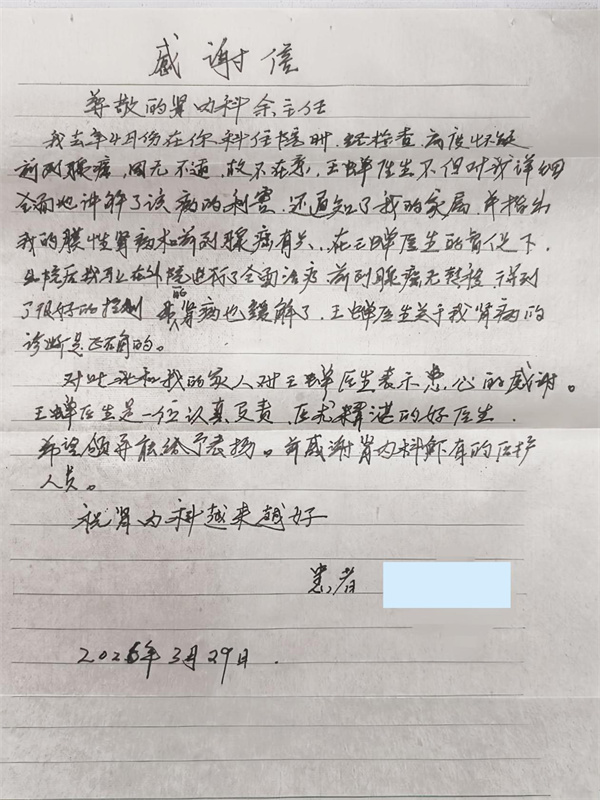 感谢信
尊敬的肾内科余主任
我去年4月份在你科住院时，经检查，高度怀疑
前列腺癌，因无不适，故不在意，王蝉医生不但对我详细
全面地讲解了该病的利害，还通知了我的家属，并指出
我的膜性肾病和前列腺癌有关，在王蝉医生的下，
出院后我在外院进行了全面治疗，前列腺癌无转移，得到
了很好的控制，我的肾病也缓解了，王蝉医生关于我肾病的
诊断是正确的。
对此我和我的家人对王蝉医生表示忠心的感谢。
王蝉医生是一位认真负责，医术精湛的好医生，
希望领导能给予表扬。并感谢肾内科所有的医护
人员。
祝肾内科越来越好
患者
2026年3月29日.